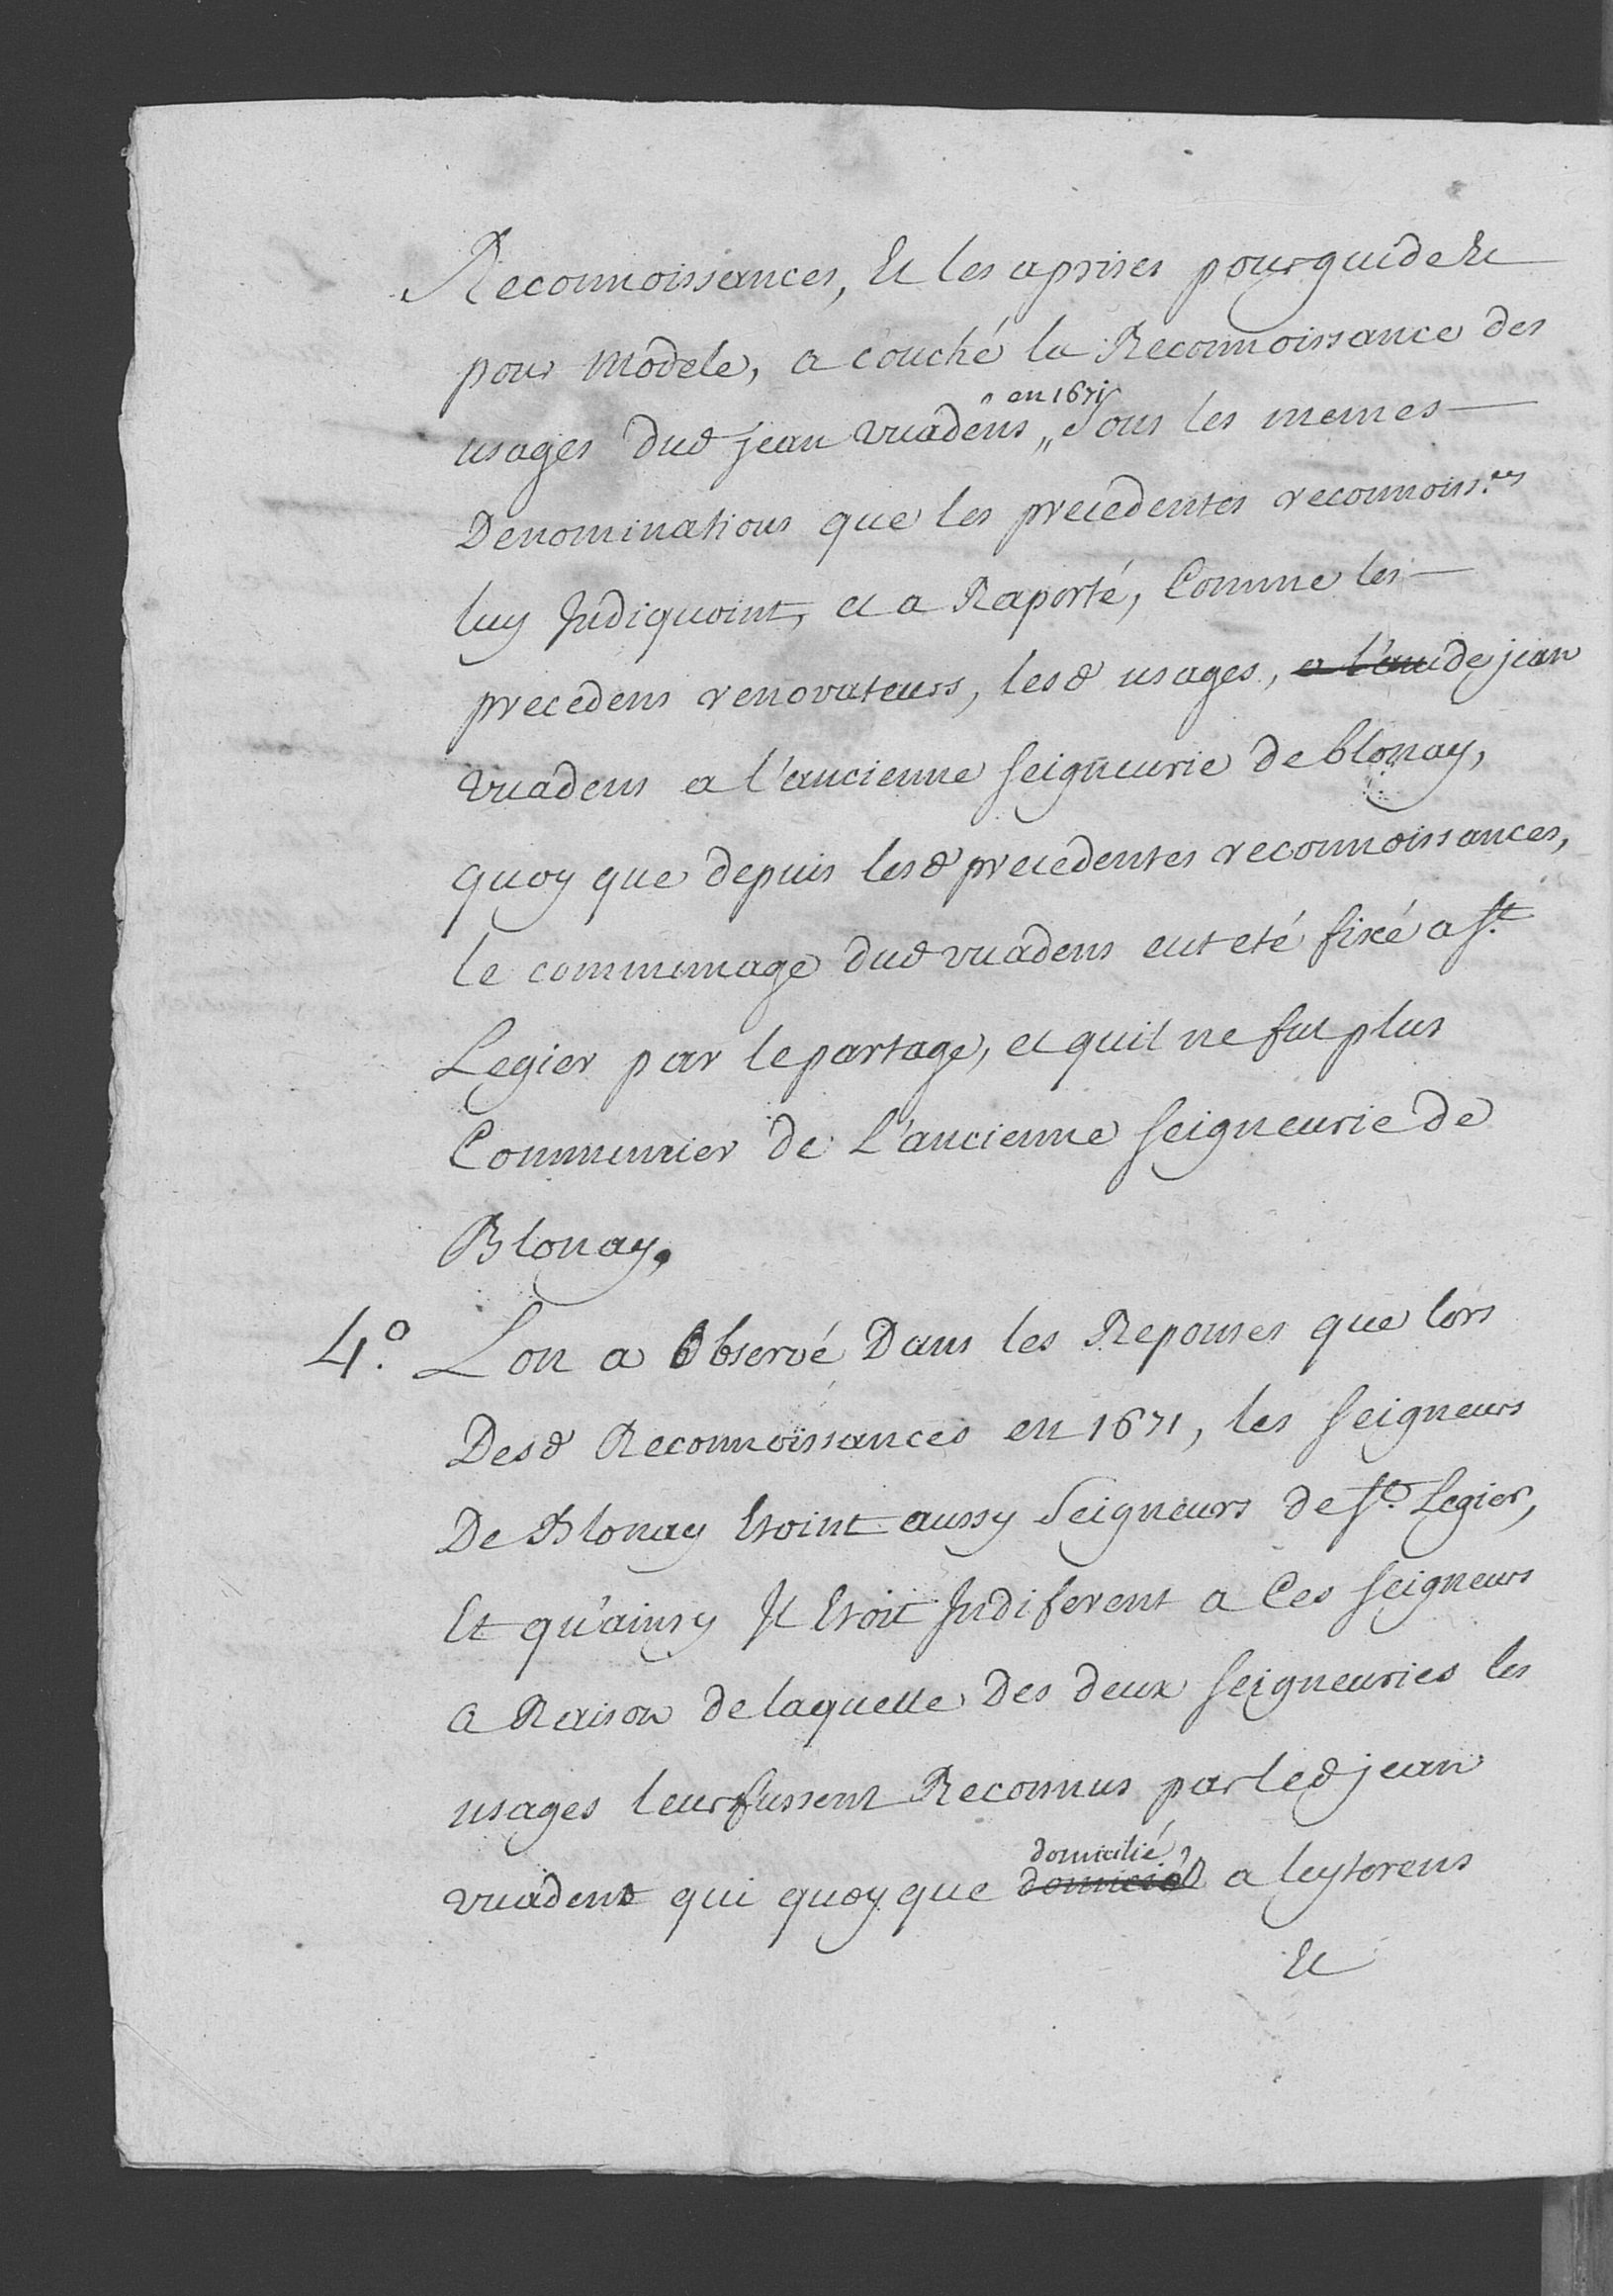 Reconnoissances, Et les a prises pour guide Et
pour modele, a couché la Reconnoissance des
usages dud jean vuadens „ en 1671 Sous les memes
Denominations que les precedentes reconnoiss.ces
luy Indiquoint, et a Raporté, Comme les
precedens renovateurs, lesd usages, de jean
vuadens a l'ancienne seigneurie de blonay,
quoy que depuis lesd precedentes reconnoissances,
le communage dud vuadens eut eté fixé a st.
Legier par le partage, et quil ne fut plus
Communier de L'ancienne seigneurie de
Blonay.
4.o Lon a Observé Dans les Reponses que lors
Desd Reconnoissances en 1671, les seigneurs
De Blonay Etoint aussy Seigneurs de st. Legier,
Et qu'ainsy Il Etoit Indiferent a Ces seigneurs
a Raison de laquelle Des deux seigneuries les
usages leur fussent Reconnus par led jean
vuadens qui quoy que domicilié a leytorens
Et